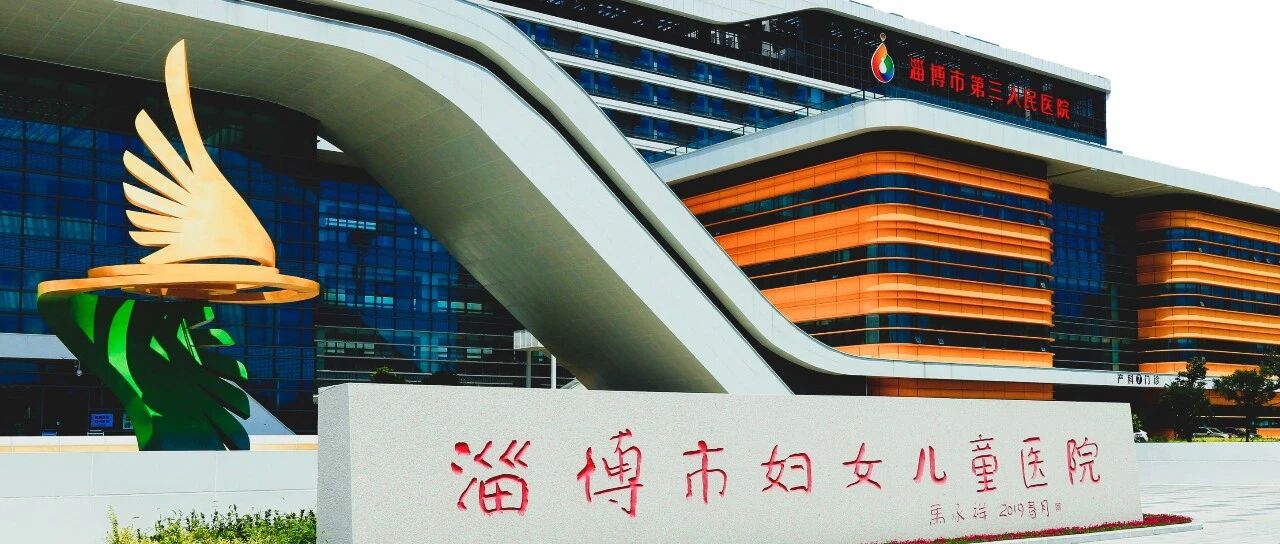 淄博市第三人民医院
产科门诊
淄博市妇女儿童医院
2019春月